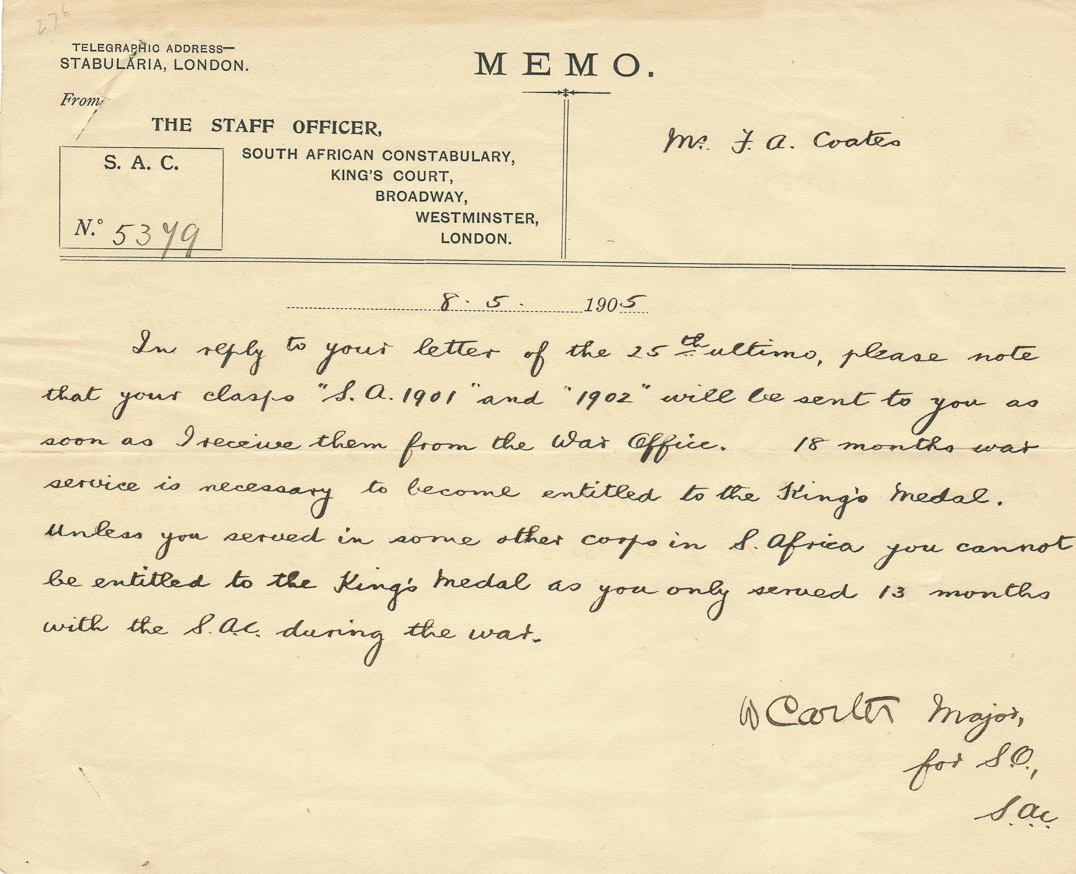 276
TELEGRAPHIC ADDRESS—
STABULARIA, LONDON.
MEMO.
From
THE STAFF OFFICER,
SOUTH AFRICAN CONSTABULARY,
KING'S COURT,
BROADWAY,
WESTMINSTER,
LONDON.
S. A. C.
N.º 5379
Mr. F. A. Coates
8. 5. 1905
In reply to your letter of the 25th ultimo, please note
that your clasps "S. A. 1901" and "1902" will be sent to you as
soon as I receive them from the War Office. 18 months war
service is necessary to become entitled to the King's Medal.
Unless you served in some other corps in S. Africa you cannot
be entitled to the King's Medal as you only served 13 months
with the S.A.C. during the war.
W Carter Major,
for S.O.,
S.A.C.